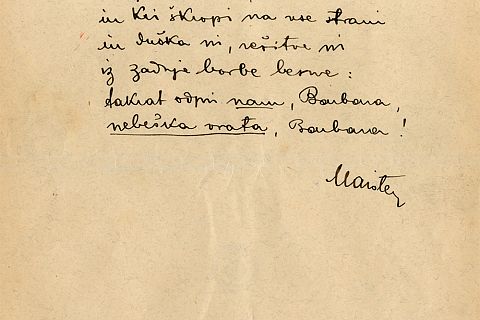 in kri škropi na vse strani
in duška ni, rešitve ni
iz zadnje borbe besne:
takrat odpri nam, Barbara,
nebeška vrata, Barbara!
Maister